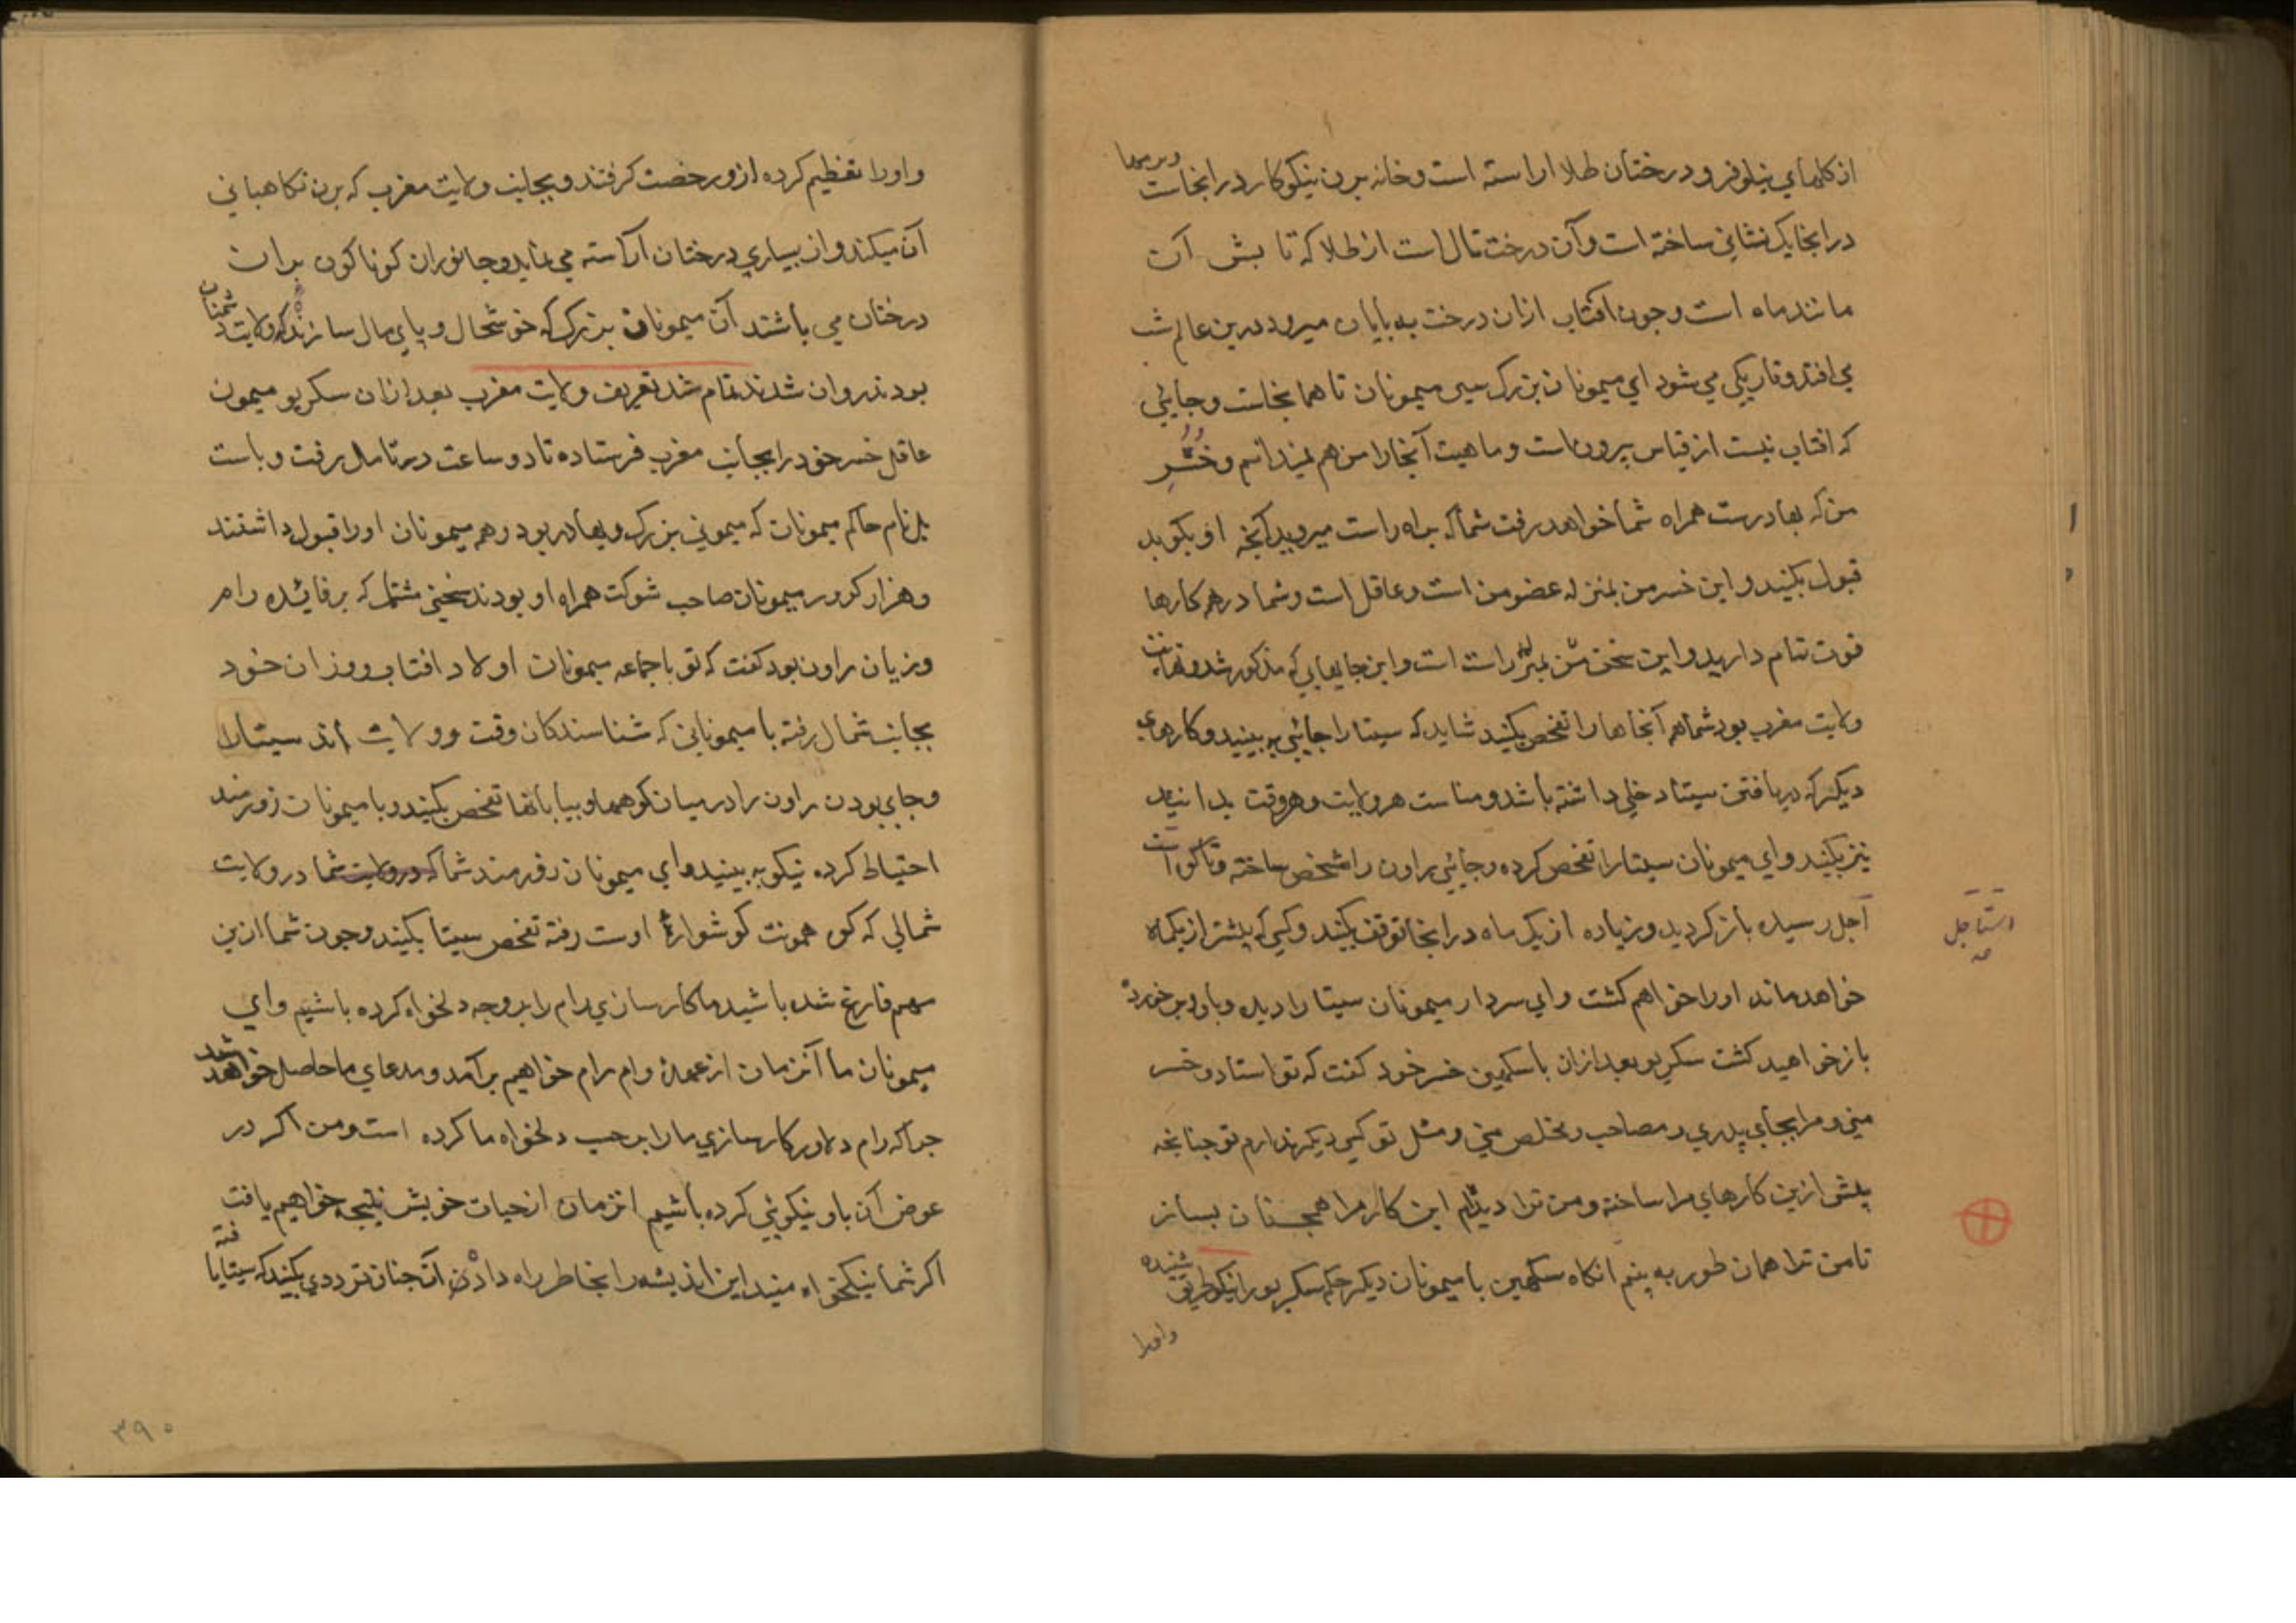 از کلهای نیلوفر و درختان طلا اراسته است و خانه برن نیکوکار در انجاست
در انجا یک نشانی ساخته است و آن درخت تال است از طلا که تابش آن
مانند ماه است و چون افتاب ازان درخت به پایان میرود درین عالم شب
می افتد و تاریکی می شود ای میمونان بزرک سیر میمونان تا همانجاست و جایی
که افتاب نیست از قیاس بیرون است و ماهیت آنجا را من هم نمیدانم و خسر
من که بهادرست همراه شما خواهد رفت شما که براه راست میروید آنچه او بکوید
قبول بکنید و این خسر من بمنزله عضو من است و عاقل است و شما در همه کارها
قوت تمام دارید و این سخن من راست است و این جایهایی که مذکور شد
ولایت مغرب بود شما هم آنجاها را تفحص بکنید شاید که سیتا را جائی به بینید و کارهای
دیکر که در یافتن سیتا دخلی داشته باشد و مناسب هر ولایت و هر وقت بدانید
نیز بکنید و ای میمونان سیتا را تفحص کرده و جائی راون را مشخص ساخته
آجل رسیده باز کردید و زیاده از یک ماه در انجا توقف نکنید و کسی که بیشتر از یکماه
خواهد ماند او را خواهم کشت و ای سردار میمونان سیتا را دیده
باز خواهید کشت سکریو بعد ازان با سکهین خسر خود کفت که تو استاد و خسر
منی و مرا بجای پدری و مصاحب و مخلص منی و مثل تو کسی دیکر ندارم تو چنانچه
پیش ازین کارهای مرا ساخته و من ترا دیده ام این کار مرا همچنان بساز
تا من ترا همان طور به بینم انکاه سکهین با میمونان دیکر حکم سکریو را نیکو طریق شنیده
و اورا
استاجل
و اورا تعظیم کرده ازو رخصت کرفتند و بجانب ولایت مغرب که برن نکاهبانی
آن میکند و از بسیاری درختان آراسته می نماید و جانوران کوناکون بران
درختان می باشند آن میمونان بزرک که خوشحال و پای مال سازنده ولایت دشمنان
بودند روان شدند تمام شد تعریف ولایت مغرب بعد ازان سکریو میمون
عاقل خسر خود را بجانب مغرب فرستاده تا دو ساعت در تامل رفت و باست
بل نام حاکم میمونان که میمونی بزرک و بهادر بود و همه میمونان او را قبول داشتند
و هزار کرور میمونان صاحب شوکت همراه او بودند سخنی مشتمل که بر فائده رام
و زیان راون بود کفت که تو با جماعه میمونان اولاد افتاب و وزیران خود
بجانب شمال رفته با میمونانی که شناسندکان وقت و ولایت اند سیتا را
و جای بودن راون را در میان کوهها و بیابانها تفحص بکنید و با میمونان زورمند
احتیاط کرده نیکو به بینید و ای میمونان زورمند شما که در ولایت شما در ولایت
شمالی که کوه همونت کوشواره اوست رفته تفحص سیتا بکنید و چون شما ازین
مهم فارغ شده باشید ما کارسازی رام را بر وجه دلخواه کرده باشیم و ای
میمونان ما آنزمان از عهده وام رام خواهیم برآمد و مدعای ما حاصل خواهد شد
چرا که رام دلاور کارسازی ما را بر حسب دلخواه ما کرده است و من اکر در
عوض آن باو نیکوئی کرده باشیم انزمان از حیات خویش نتیجه خواهیم یافت
اکر شما نیکخواه منید این اندیشه را بخاطر راه داده آنچنان ترددی بکنید که سیتا یافته
۳۹۰